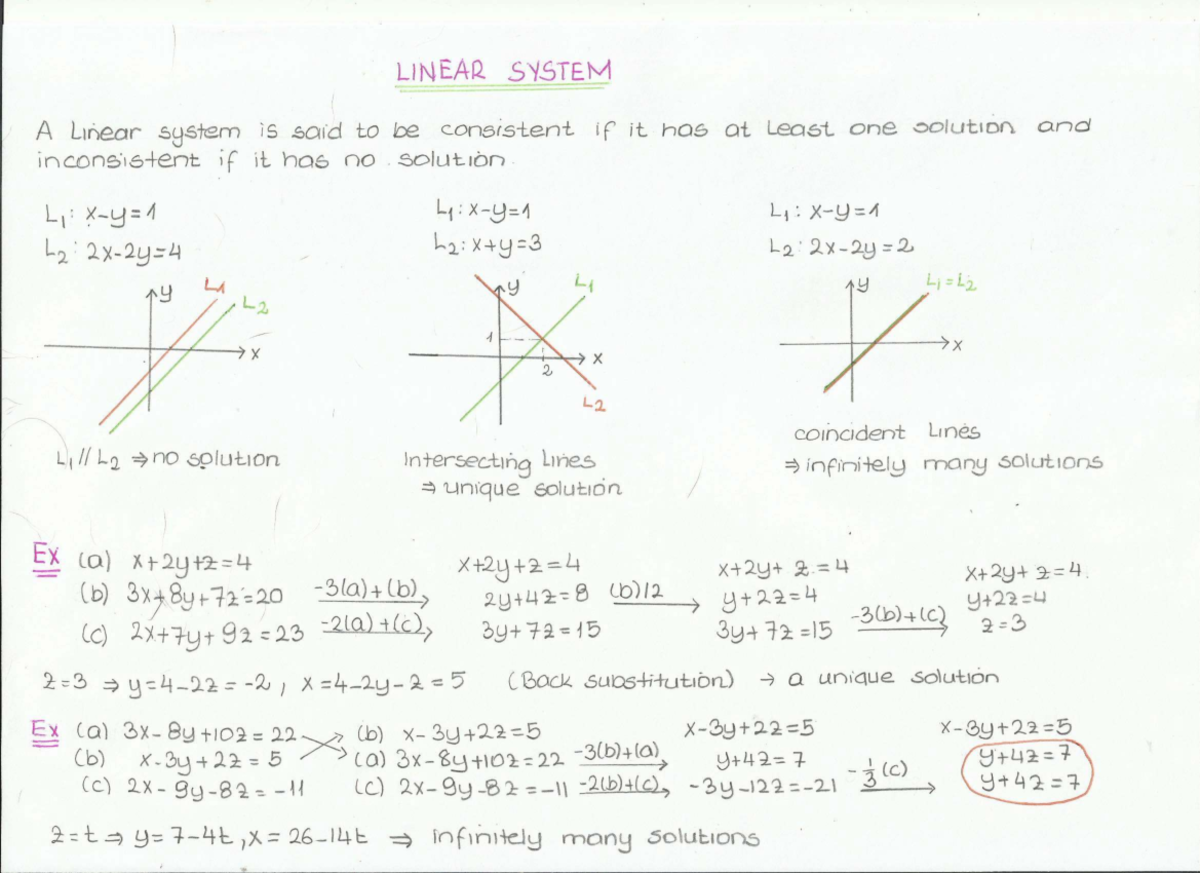 LINEAR SYSTEM
A Linear system is said to be consistent if it has at least one solution and
inconsistent if it has no solution.
L₁: x-y=1
L₂: 2x-2y=4
y
L1
L2
x
L₁ // L₂ ⇒ no solution
L₁: x-y=1
L₂: x+y=3
y
L1
1
2
x
L2
Intersecting Lines
⇒ unique solution
L₁: x-y=1
L₂: 2x-2y=2
y
L₁=L₂
x
coincident Lines
⇒ infinitely many solutions
Ex (a) x+2y+z=4 x+2y+z=4 x+2y+z=4 x+2y+z=4.
(b) 3x+8y+7z=20 -3(a)+(b) → 2y+4z=8 (b)/2 → y+2z=4 y+2z=4
(c) 2x+7y+9z=23 -2(a)+(c) → 3y+7z=15 3y+7z=15 -3(b)+(c) → z=3
z=3 ⇒ y=4-2z=-2, x=4-2y-z=5 (Back substitution) → a unique solution
Ex (a) 3x-8y+10z=22 (b) x-3y+2z=5 x-3y+2z=5 x-3y+2z=5
(b) x-3y+2z=5 (a) 3x-8y+10z=22 -3(b)+(a) → y+4z=7 y+4z=7
(c) 2x-9y-8z=-11 (c) 2x-9y-8z=-11 -2(b)+(c) → -3y-12z=-21 -1/3 (c) → y+4z=7
z=t ⇒ y=7-4t, x=26-14t ⇒ infinitely many solutions